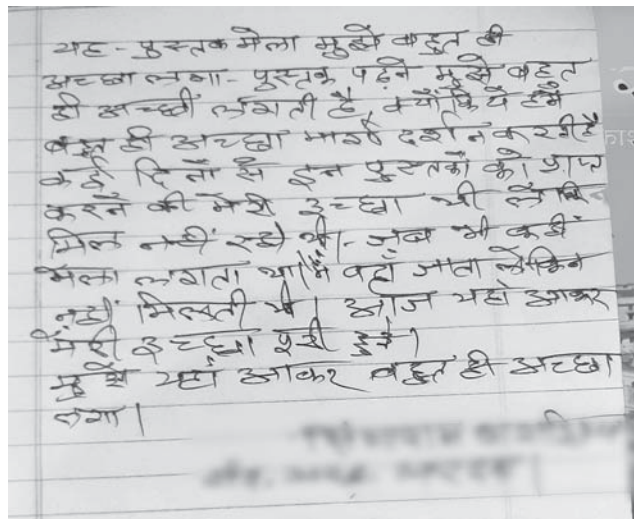 यह - पुस्तक मेला मुझे बहुत ही
अच्छा लगा - पुस्तक पढ़ने मुझे बहुत
ही अच्छी लगती है क्योंकि ये हमें
बहुत ही अच्छा मार्ग दर्शन करती है
कई दिनों से इन पुस्तकों को प्राप्त
करने की मेरी इच्छा थी लेकिन
मिल नहीं रही थी - जब भी कहीं
मेला लगता था मैं वहाँ जाता लेकिन
नहीं मिलती थी। आज यहाँ आकर
मेरी इच्छा पूरी हुई।
मुझे यहाँ आकर बहुत ही अच्छा
लगा।